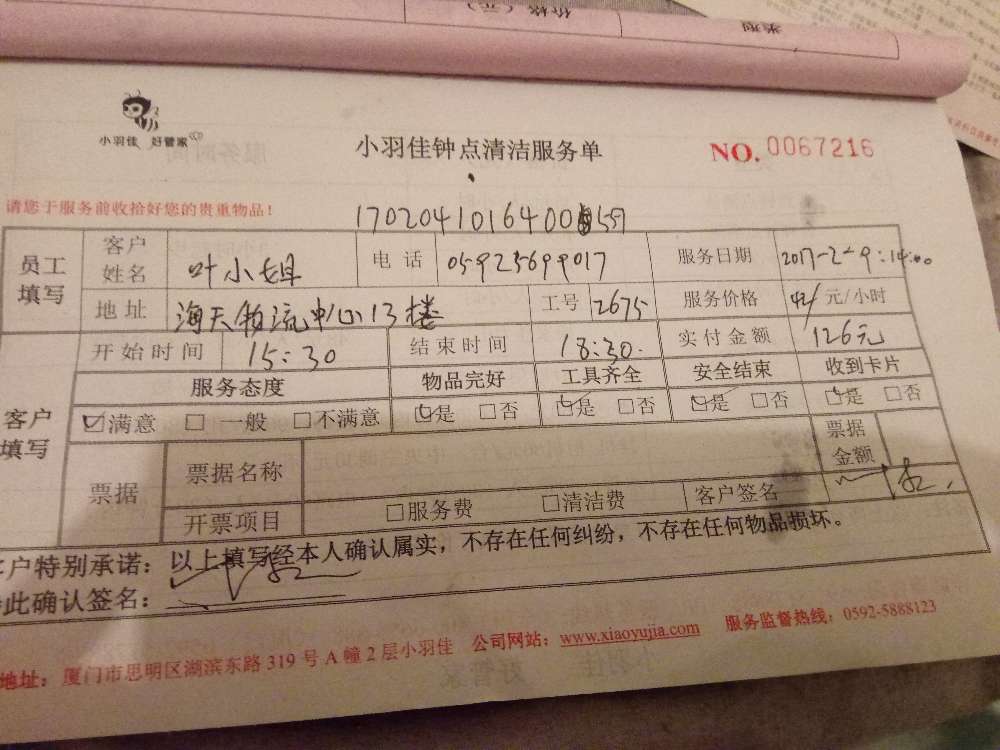 类型
价格（元）
小羽佳 好管家
小羽佳钟点清洁服务单
NO.0067216
请您于服务前收拾好您的贵重物品！
员工填写
客户姓名 叶小姐 电话 05923699017 服务日期
地址 海天物流中心13楼 工号 2675 服务价格 42/ 元/小时
客户填写
开始时间 15:30 结束时间 18:30. 实付金额 126元
服务态度 物品完好 工具齐全 安全结束 收到卡片
☑满意 □一般 □不满意 ☑是 □否 ☑是 □否 ☑是 □否 ☑是 □否
票据 票据名称 票据金额
开票项目 □服务费 □清洁费 客户签名
客户特别承诺：以上填写经本人确认属实，不存在任何纠纷，不存在任何物品损坏。
此确认签名：
地址：厦门市思明区湖滨东路319号A幢2层小羽佳 公司网站：www.xiaoyujia.com 服务监督热线：0592-5888123